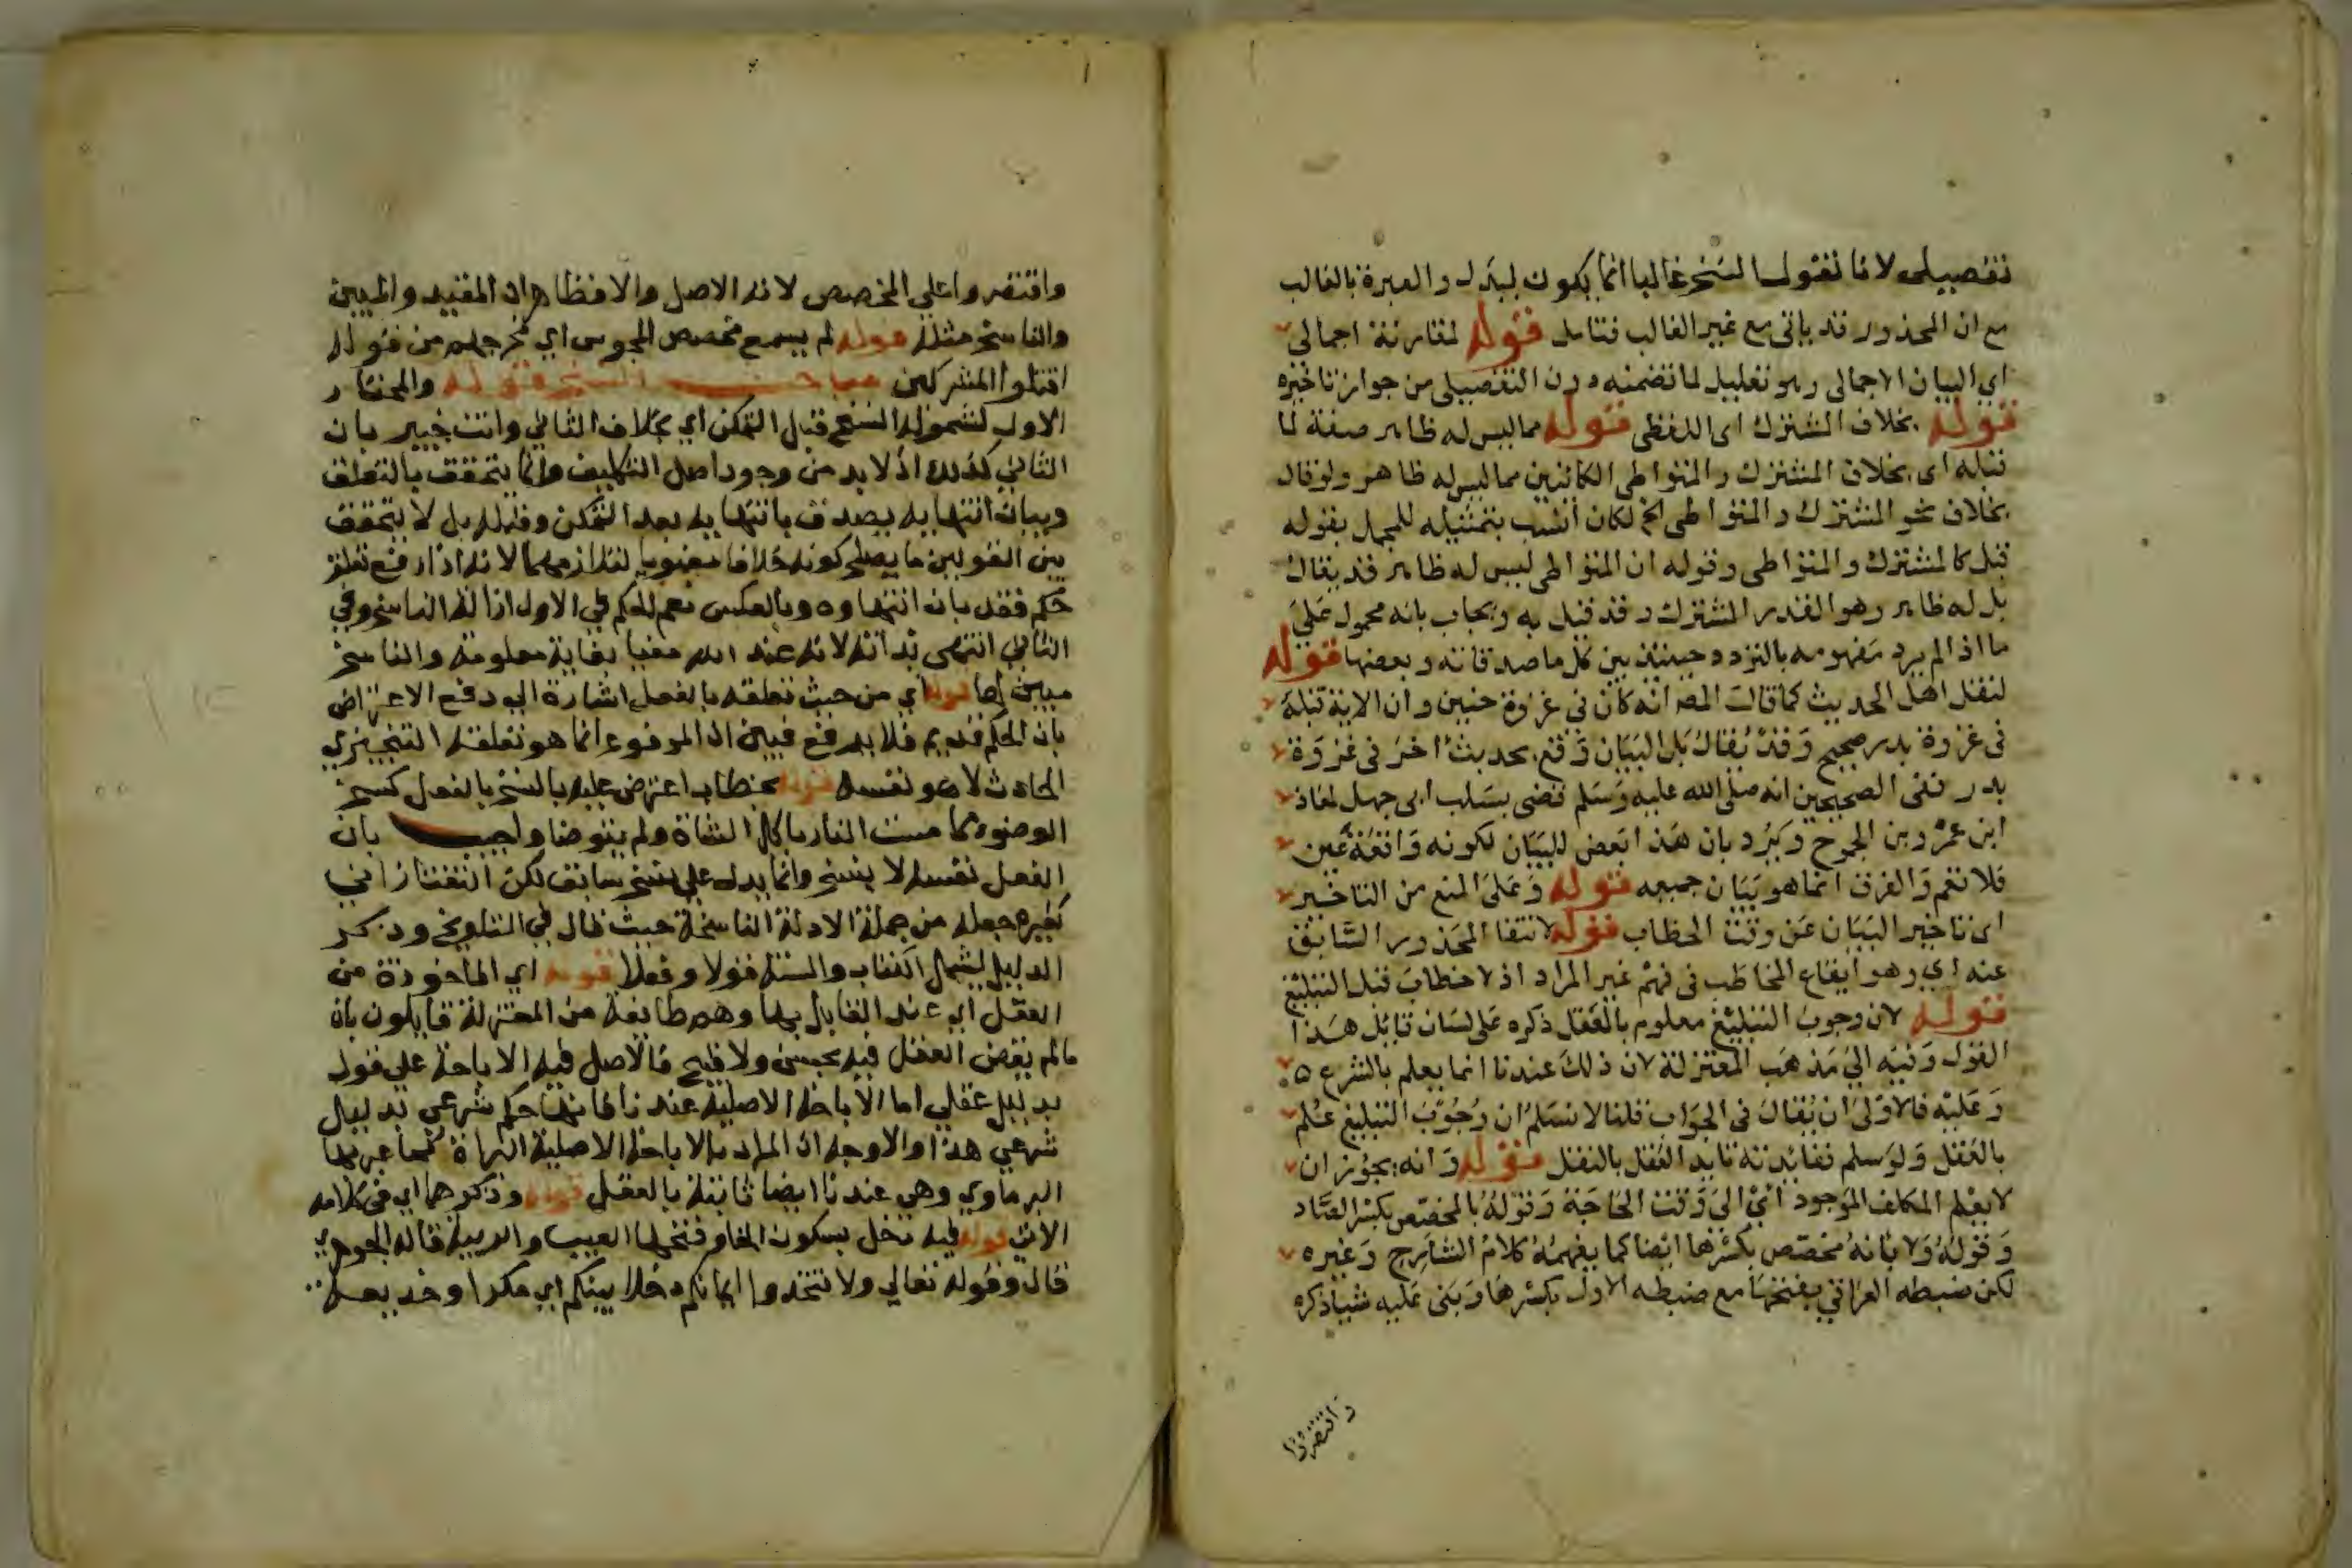 تفصيلى لانا نقول النسخ غالبا انما يكون لبدل والعبرة بالغالب
مع ان المحذور قد ياتى مع غير الغالب فتامل قوله لمقارنة اجمالى
اى البيان الاجمالى وهو تعليل لما تضمنه دون التفصيلى من جواز تاخيره
قوله بخلاف المشترك اى اللفظى قوله مما ليس له ظاهر صفة لما
قبله اى بخلاف المشترك والمتواطى الكائنين مما ليس له ظاهر ولو قال
بخلاف نحو المشترك والمتواطى الخ لكان أنسب بتمثيله للمجمل بقوله
قبل كالمشترك والمتواطى وقوله ان المتواطى ليس له ظاهر قد يقال
بل له ظاهر وهو القدر المشترك وقد قيل به ويجاب بانه محمول عَلَى
ما اذا لم يرد مفهومه بالتردد حينئذ بين كل ماصدقاته وبعضها قوله
لنقل اهل الحديث كما قال المص انه كان فى غزوة حنين وان الاية قبله
فى غزوة بدر صحيح وَقدْ يُقال بَل البَيَان وَقع بحديث أخرَ فى غزوَة
بدر ففى الصحيحين انه صلى الله عليه وَسَلم قضى بسَلب ابى جهل لمعاذ
ابن عمْرو بن الجموح وَيَرُد بان هَذا بَعض للبيَان لكونه وَاقعَة عَين
فلا تعم وَالفرق انما هو بَيَان جميعه قوله وَعَلى المنع من التاخير
اى تاخير البَيَان عَن وقت الخطاب قوله لانتفا المحَذور السَّابق
عنه اي وهو ايقاع المخاطب فى فهم غير المراد اذ لا خطابَ قبل التبليغ
قوله لان وجوبَ التبليغ معلوم بالعَقل ذكره عَلى لسَان قائل هَذا
القول وَنبه الىَ مَذهَب المعتزلة لان ذلكَ عندنا انما يعلم بالشرع ٥
وَعَليْه فالاوْلىَ ان يُقالَ فى الجوَاب قلنا لا نسَلمُ ان وُجُوْبَ التبليغ علم
بالعَقل وَلوْ سلم ففائدته تاييد العَقل بالنقل قوله وَانه يجوز ان
لا يعْلم المكلف الموَجود اىْ الىَ وَقت الحَاجَة وَقوْلهُ بالمخصّص بكسْر الصّاد
وَقوْلهُ وَلا بأنهُ مخصّص بكسْرها ايْضا كما يفهمُهُ كلامُ الشارِح وَغيره
لكن ضبطه العراقي بفتحهَا مع ضبطه الاول بكسْرهَا وَبَنى عَليه شيأ ذكره
واقتصروا
واقتصروا على المخصص لانه الاصل والا فظاهر ان المقيد والمبين
والناسخ مثله قوله لم يسمع مخصص المجوس اي مخرجهم من قوله
اقتلوا المشركين مباحث النسخ قوله والمختار
الاول لشموله النسخ قبل التمكن اي بخلاف الثاني وانت خبير بان
الثاني كذلك اذ لا بد من وجود اصل التكليف وانما يتحقق بالتعلق
وبيان انتهايه يصدق بانتهايه بعد التمكن وقبله بل لا يتحقق
بين القولين ما يصلح كونه خلافا معنويا لتلازمهما لانه اذا رفع تعلق
حكم فقد بان انتهاوه وبالعكس نعم الحكم في الاول ازاله الناسخ وفي
الثاني انتهى بذاته لانه عند الله مغيا بغاية معلومة والناسخ
مبين لها قوله اي من حيث تعلقه بالفعل اشارة الى دفع الاعتراض
بان الحكم قديم فلا يرفع فبين ان المرفوع انما هو تعلقه التنجيزي
الحادث لا هو نفسه قوله بخطاب اعترض عليه بالنسخ بالفعل كنسخ
الوضوء مما مست النار باكل الشاة ولم يتوضا واجيب بان
الفعل نفسه لا ينسخ وانما يدل على نسخ سابق لكن التفتازاني
كغيره جعله من جملة الادلة الناسخة حيث قال في التلويح وذكر
الدليل ليشمل الكتاب والسنة قولا وفعلا قوله اي الماخوذة من
العقل اي عند القايل بها وهم طايفة من المعتزلة قايلون بان
مالم يقض العقل فيه بحسن ولا قبح فالاصل فيه الاباحة على قول
بدليل عقلي اما الاباحة الاصلية عندنا فانها حكم شرعي بدليل
شرعي هذا والاوجه ان المراد بالاباحة الاصلية البراة كما عبر بها
البرماوي وهي عندنا ايضا ثابتة بالعقل قوله وذكرهما اي فى كلامه
الاتي قوله فيه دخل بسكون الخا وفتحها العيب والريبة قاله الجوهري
قال وقوله تعالي ولا تتخذوا ايمانكم دخلا بينكم اي مكرا وخديعة